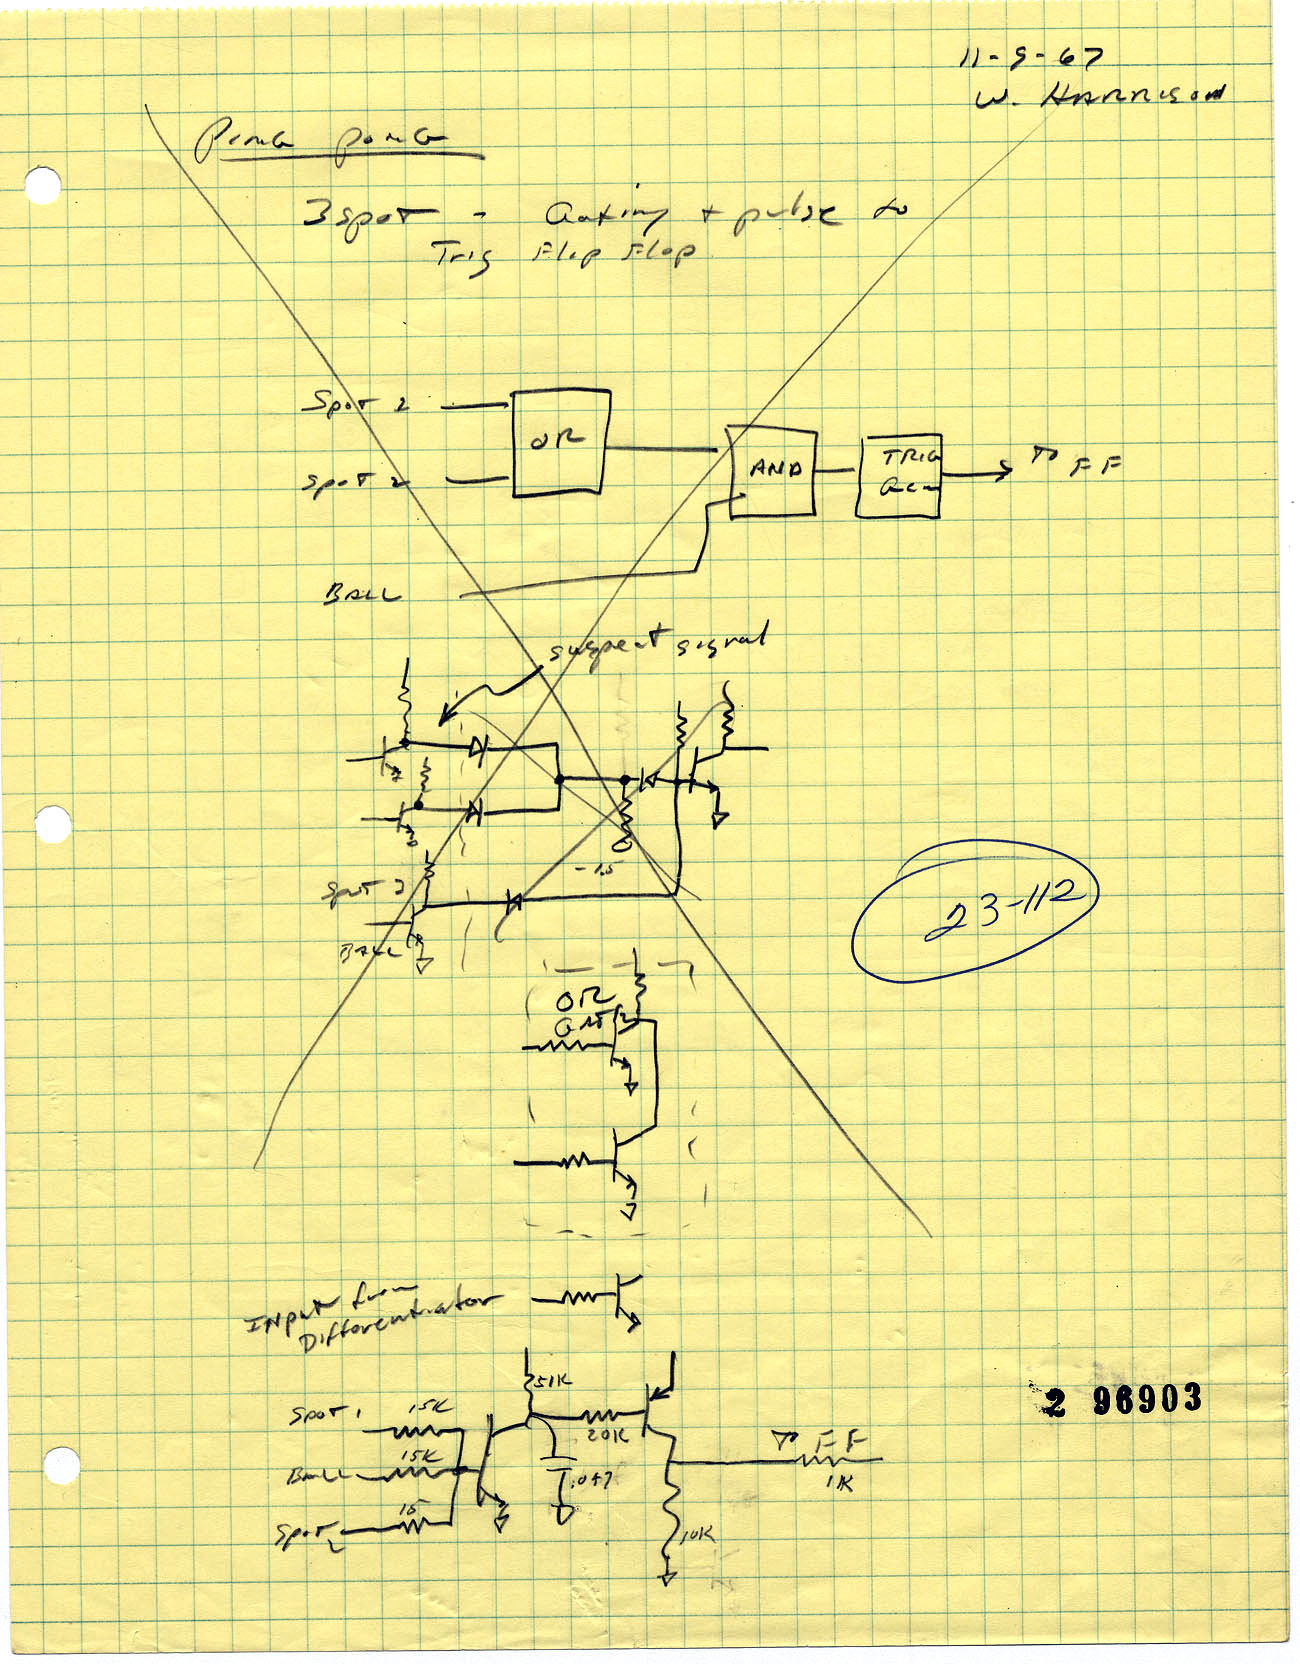 11-9-67
W. HARRISON
Ping pong
3 spot - Gating + pulse to
Trig Flip Flop
Spot 2
OR
Spot 2
AND
TRIG
Gen
TO FF
BALL
suspect signal
-1.5
Spot 2
BALL
23-112
OR
GATE
INPUT from
Differentiator
51K
2 96903
Spot 1
15K
20K
TO FF
1K
Ball
15K
.047
Spot 2
15
10K